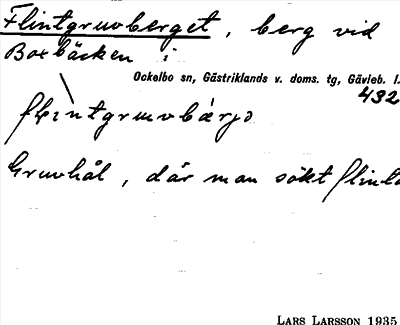 Flintgruvberget, berg vid
Boxbäcken i
Ockelbo sn, Gästriklands v. doms. tg, Gävleb. l.
432
Gruvhål, där man sökt flinta
LARS LARSSON 1935